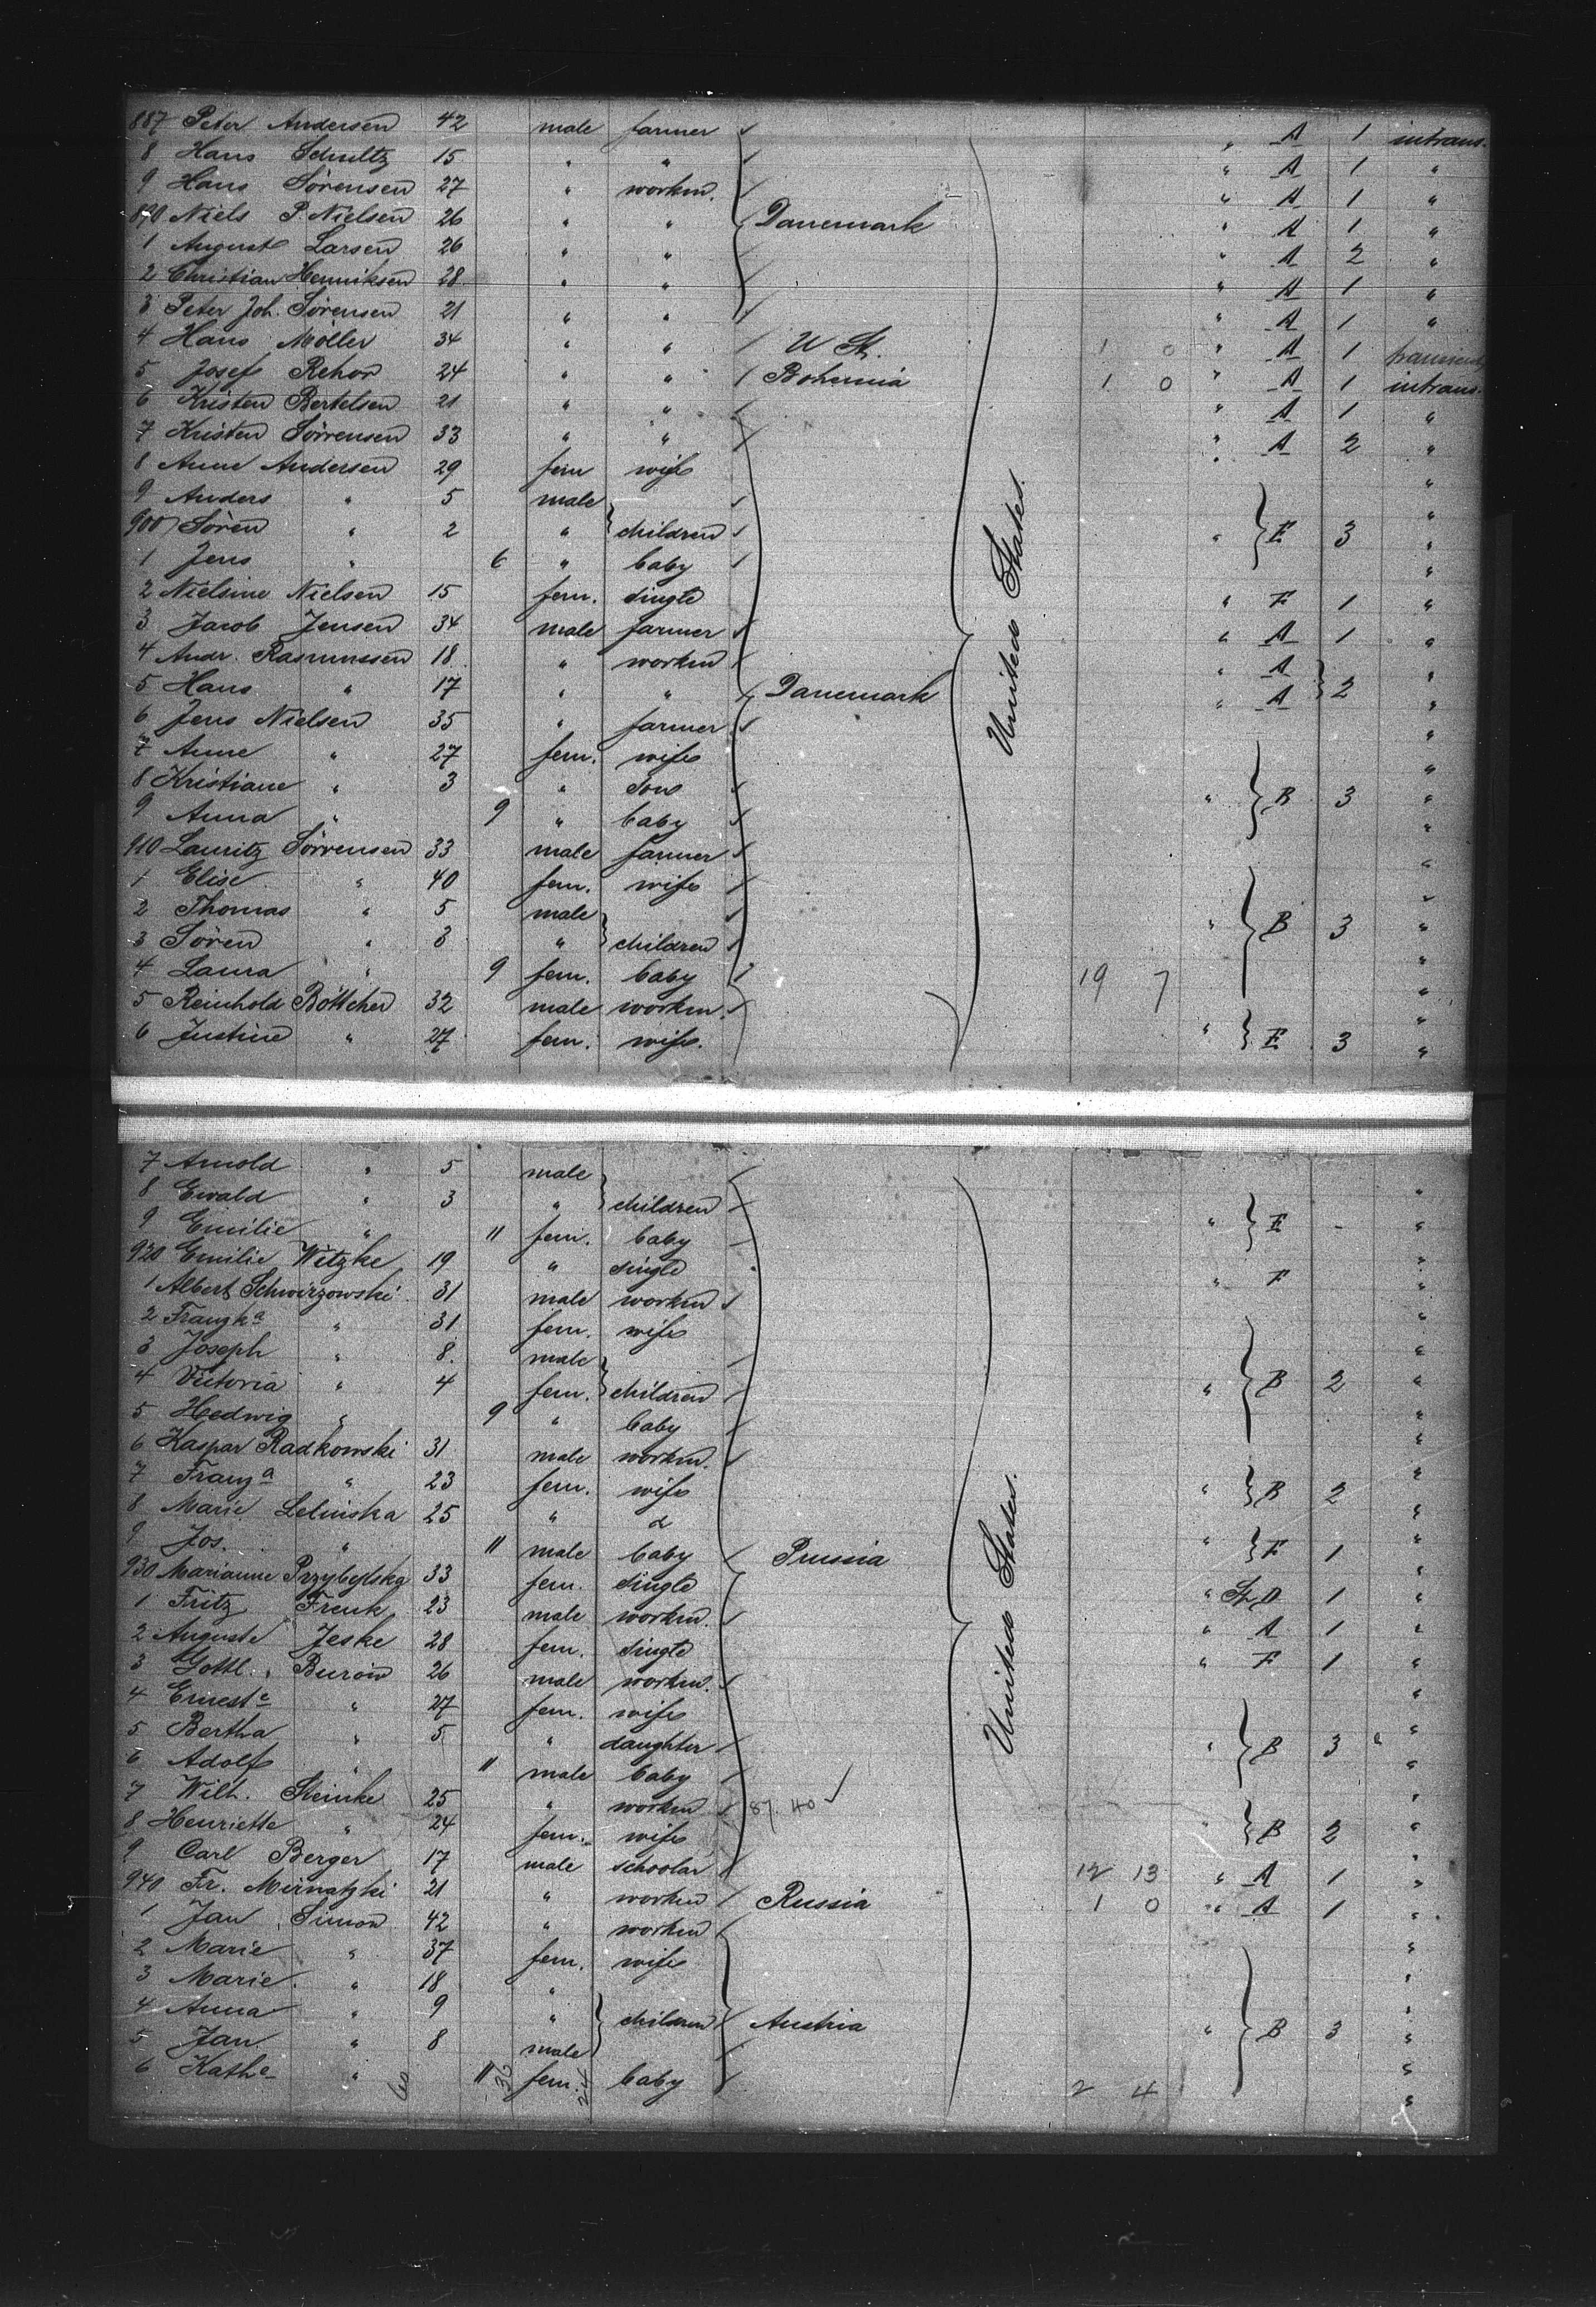 887 Peter Andersen 42 male farmer " A 1 intrans.
8 Hans Schultz 15 " " " A 1 "
9 Hans Sørensen 27 " workm. " A 1 "
890 Niels P. Nielsen 26 " " Danemark " A 1 "
1 August Larsen 26 " " " A 2 "
2 Christian Henriksen 28 " " " A 1 "
3 Peter Joh. Sørensen 21 " " " A 1 "
4 Hans Möller 34 " " U St. 1 0 " A 1 transient
5 Josef Rehor 24 " " Bohemia 1 0 " A 1 intrans.
6 Kristen Bertelsen 21 " " " A 1 "
7 Kristen Sörrensen 33 " " " A 2 "
8 Anne Andersen 29 fem wife "
9 Anders " 5 male "
900 Sören " 2 " children " E 3 "
1 Jens " 6 " baby "
2 Nielsine Nielsen 15 fem. single " F 1 "
3 Jacob Jensen 34 male farmer " A 1 "
4 Andr. Rasmussen 18 " workm " A "
5 Hans " 17 " " Danemark " A 2 "
6 Jens Nielsen 35 " farmer "
7 Anne " 27 fem. wife "
8 Kristiane " 3 " son " B 3 "
9 Anna " 9 " baby "
910 Lauritz Sörrensen 33 male farmer "
1 Elise " 40 fem. wife "
2 Thomas " 5 male "
3 Sören " 3 " children " B 3 "
4 Laura " 9 fem. baby 19 7 "
5 Reinhold Böttcher 32 male workm. "
6 Justine " 27 fem. wife. " E 3 "
United States.
7 Arnold " 5 male "
8 Ewald " 3 " children " E - "
9 Emilie " 11 fem. baby "
920 Emilie Witzke 19 " single " F "
1 Albert Schwirzowski 31 male workm "
2 Franzka " 31 fem. wife "
3 Joseph " 8 male "
4 Victoria " 4 fem. children " B 2 "
5 Hedwig " 9 " baby "
6 Kaspar Radkowski 31 male workm. "
7 Franza " 23 fem. wife " B 2 "
8 Marie Lelinska 25 " "
9 Jos. " 11 male baby Prussia " F 1 "
930 Marianne Przybylska 33 fem. single " St. D 1 "
1 Fritz Frenk 23 male workm. " A 1 "
2 Auguste Jeske 28 fem. single " F 1 "
3 Gottl. Burow 26 male workm. "
4 Erneste " 27 fem. wife "
5 Bertha " 5 " daughter " B 3 "
6 Adolf " 11 male baby "
7 Wilh. Steinke 25 " workm 87. 40 "
8 Henriette " 24 fem. wife " B 2 "
9 Carl Berger 17 male schoolar 12 13 " A 1 "
940 Fr. Mirnatzki 21 " workm Russia 1 0 " A 1 "
1 Jan Simon 42 " workm "
2 Marie " 37 fem. wife "
3 Marie " 18 " "
4 Anna " 9 " children Austria " B 3 "
5 Jan " 8 male "
6 Kathe " 11 fem. baby 2 4 "
60 36 24
United States.